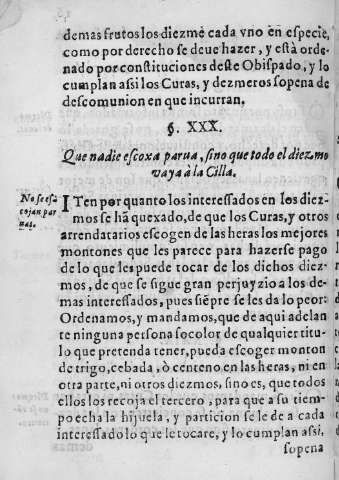 demas frutos los diezmē cada vno en especie,
como por derecho se deue hazer, y està orde-
nado por constituciones deste Obispado, y lo
cumplan assi los Curas, y dezmeros sopena de
descomunion en que incurran.
§. XXX.
Que nadie escoxa parua, sino que todo el diezmo
vaya à la Cilla.
No se es-
cojan par
uas.
ITen por quanto los interessados en los diez-
mos se hā quexado, de que los Curas, y otros
arrendatarios escogen de las heras los mejores
montones que les parece para hazerse pago
de lo que les puede tocar de los dichos diez-
mos, de que se sigue gran perjuyzio a los de-
mas interessados, pues siēpre se les da lo peor:
Ordenamos, y mandamos, que de aqui adelan
te ninguna persona socolor de qualquier titu-
lo que pretenda tener, pueda escoger monton
de trigo, cebada, ò centeno en las heras, ni en
otra parte, ni otros diezmos, sino es, que todos
ellos los recoja el tercero, para que a su tiem-
po echa la hijuela, y particion se le de a cada
interessado lo que le tocare, y lo cumplan assi,
sopena